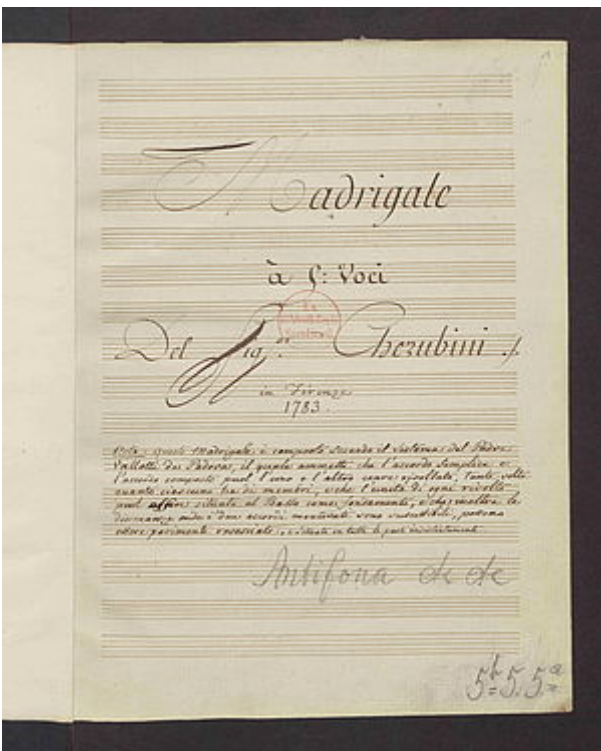 Madrigale
à 5: Voci
Del Sig.r Cherubini
in Firenze
1783.
Nota, questo Madrigale è composto secondo il sistema del Padre
Vallotti da Padova, il quale ammette che l'accordo semplice e
l'accordo composto puol l'uno e l'altro essere rivoltato, tante volte
quante ciascuno ha di membri, e che l'unità di ogni rivolto
puol essere situata al Basso come fondamento, e che inoltre le
dissonanze
essere parimente rovesciate, e situate in tutte le parti indistintamente
Antifona de de
5b 5. 5a